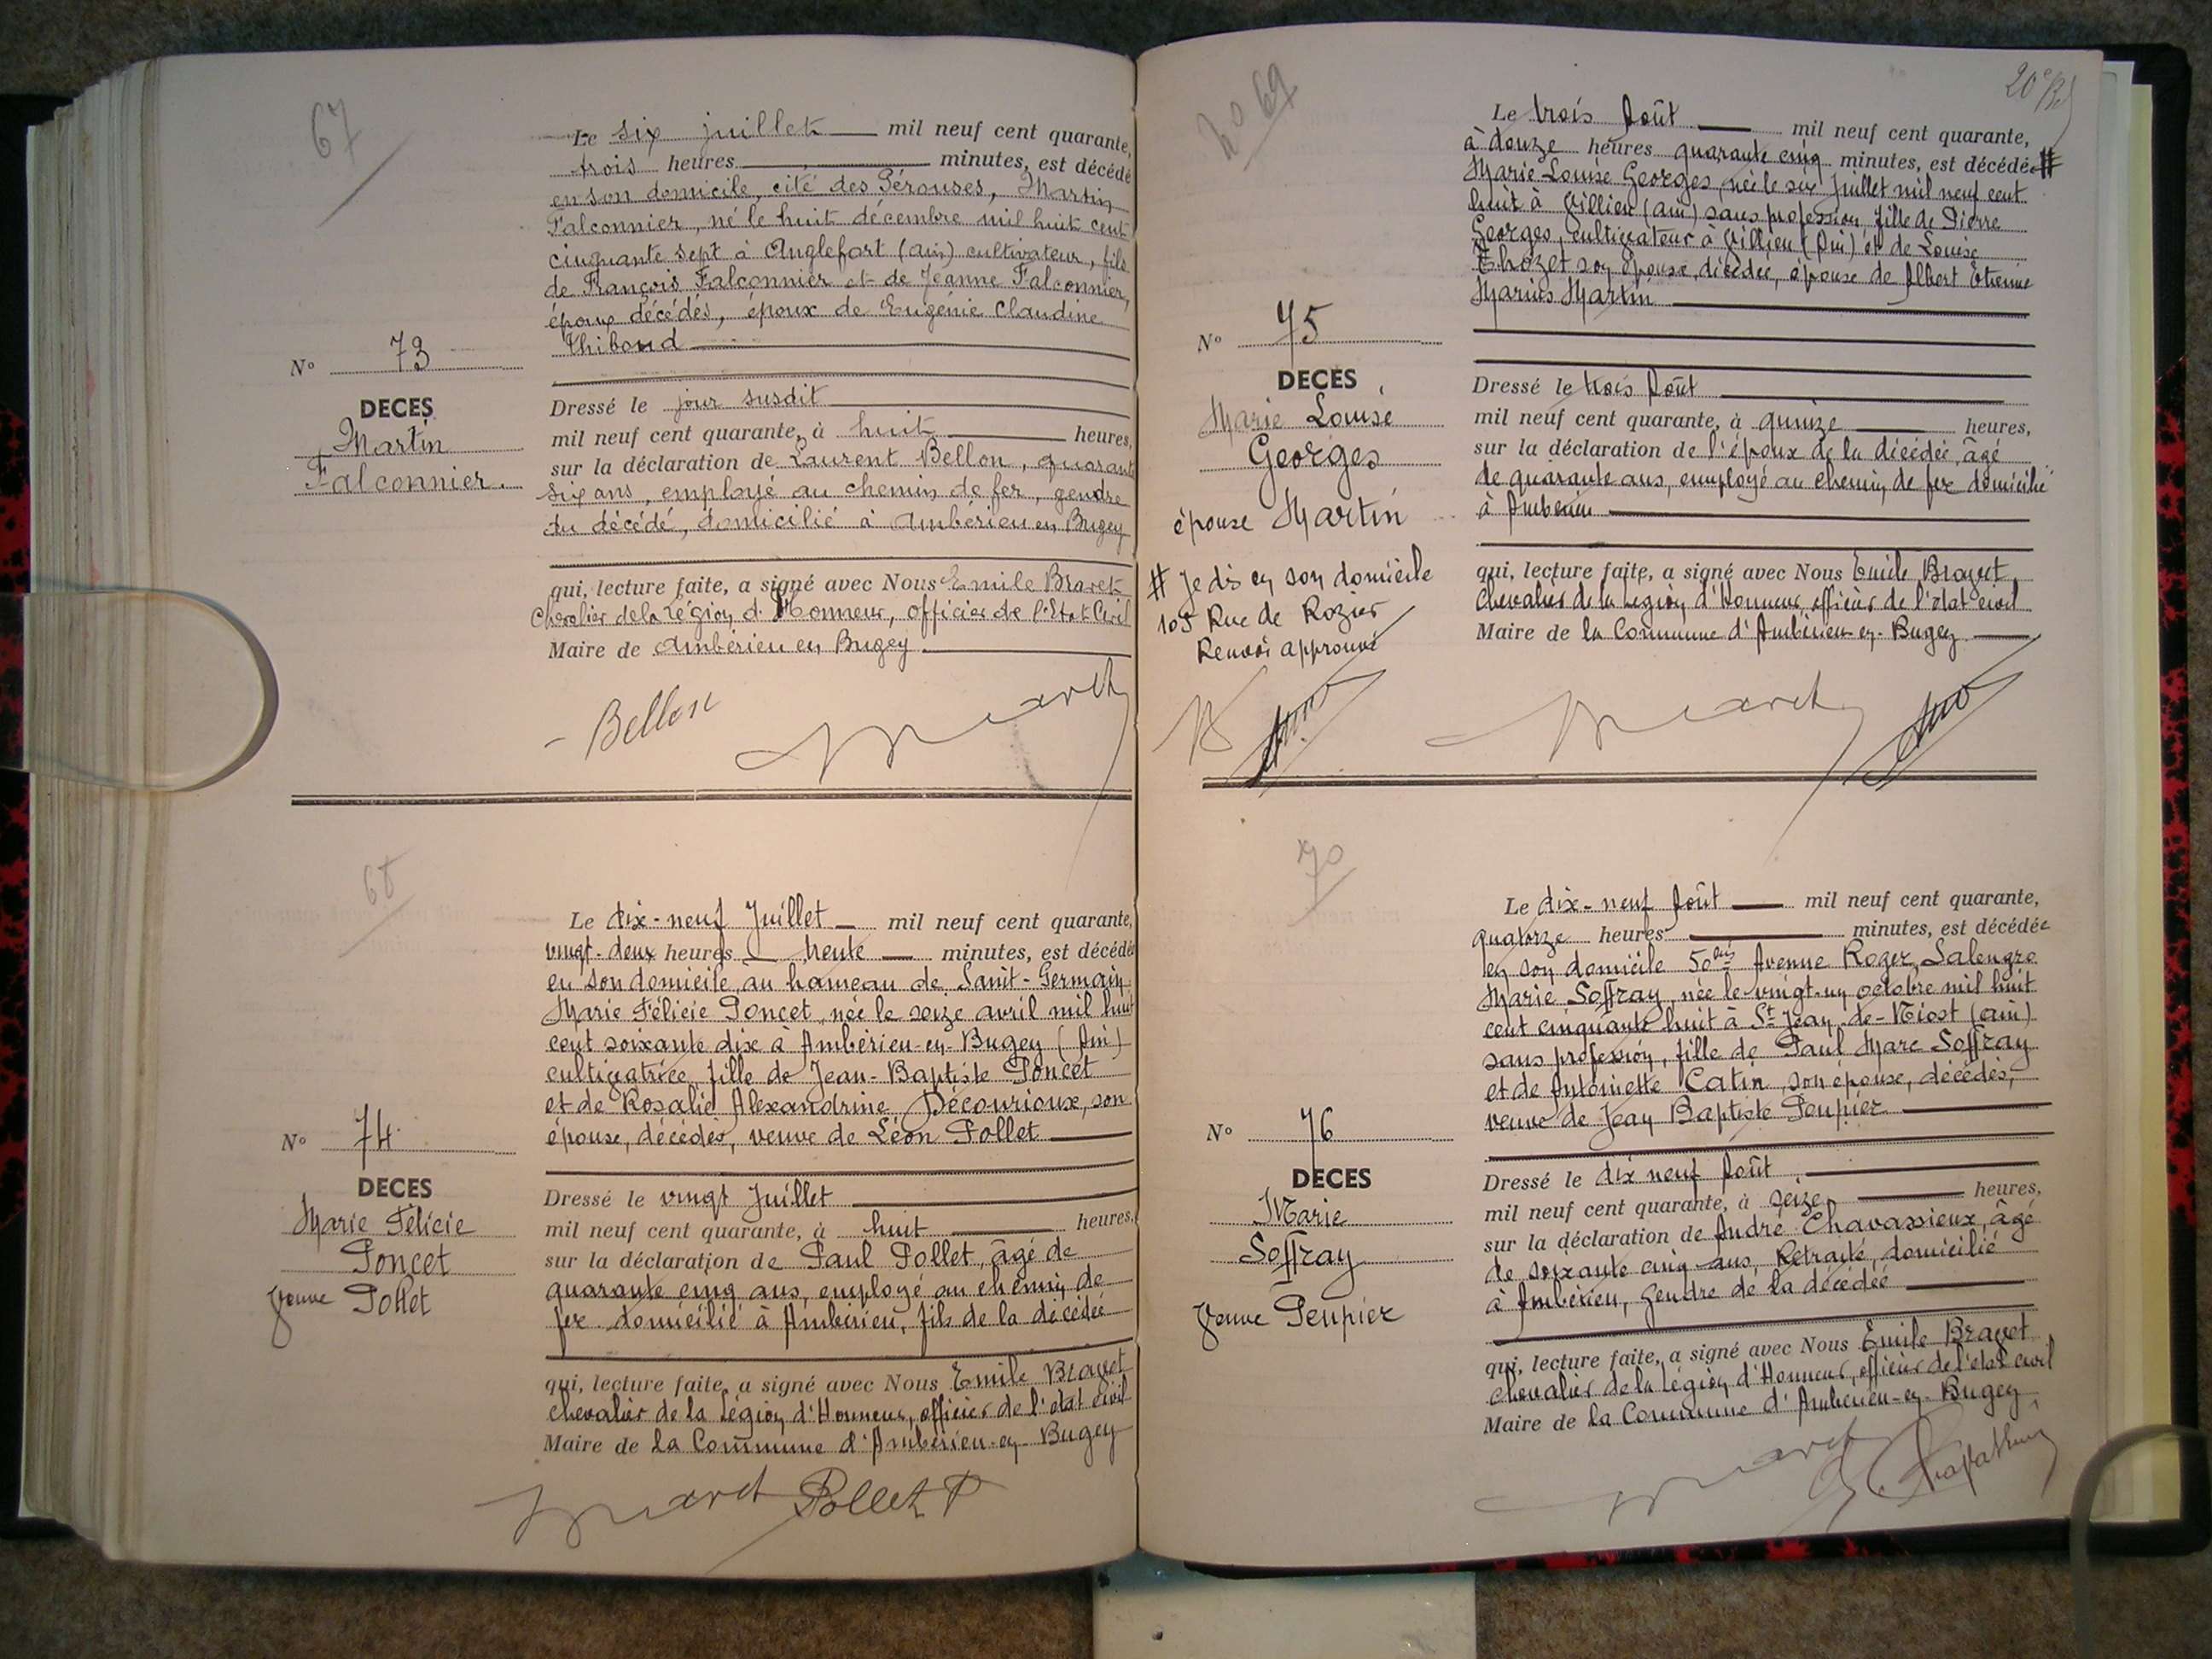 67
Le six juillet mil neuf cent quarante,
trois heures minutes, est décédé
en son domicile, cité des Pérouses, Martin
Falconnier, né le huit décembre mil huit cent
cinquante sept à Anglefort (Ain) cultivateur, fils
de François Falconnier et de Jeanne Falconnier,
époux décédés, époux de Eugénie Claudine
Thiboud
N° 73
DECES
Martin
Falconnier.
Dressé le jour susdit
mil neuf cent quarante, à huit heures,
sur la déclaration de Laurent Bellon, quarante
six ans, employé au chemin de fer, gendre
du décédé, domicilié à Ambérieu en Bugey
qui, lecture faite, a signé avec Nous Emile Bravet
Chevalier de la Légion d'Honneur, officier de l'Etat Civil
Maire de Ambérieu en Bugey.
Bellon
68
Le dix-neuf Juillet mil neuf cent quarante,
vingt-deux heures trente minutes, est décédée
en son domicile, au hameau de Saint-Germain
Marie Félicie Poncet, née le seize avril mil huit
cent soixante dix à Ambérieu-en-Bugey (Ain)
cultivatrice, fille de Jean-Baptiste Poncet
et de Rosalie Alexandrine Décourioux, son
épouse, décédés, veuve de Léon Pollet
N° 74
DECES
Marie Félicie
Poncet
Veuve Pollet
Dressé le vingt Juillet
mil neuf cent quarante, à huit heures,
sur la déclaration de Paul Pollet, âgé de
quarante cinq ans, employé au chemin de
fer domicilié à Ambérieu, fils de la décédée
qui, lecture faite, a signé avec Nous Emile Bravet
Chevalier de la Légion d'Honneur, officier de l'état civil
Maire de la Commune d'Ambérieu-en-Bugey
Pollet P
69
Le trois Août mil neuf cent quarante,
à douze heures quarante cinq minutes, est décédée #
Marie-Louise Georges, née le six Juillet mil neuf cent
huit à Villieu (Ain) sans profession, fille de Pierre
Georges, cultivateur à Villieu (Ain) et de Louise
Thozet son épouse, décédée, épouse de Albert Etienne
Marius Martin
N° 75
DECES
Marie Louise
Georges
épouse Martin
# Je dis en son domicile
105 Rue de Rozier
Renvoi approuvé
Dressé le trois Août
mil neuf cent quarante, à quinze heures,
sur la déclaration de l'époux de la décédée, âgé
de quarante ans, employé au chemin de fer domicilié
à Ambérieu
qui, lecture faite, a signé avec Nous Emile Bravet,
Chevalier de la Légion d'Honneur, officier de l'état civil
Maire de la Commune d'Ambérieu-en-Bugey
70
Le dix-neuf Août mil neuf cent quarante,
quatorze heures minutes, est décédée
en son domicile 50bis Avenue Roger Salengro
Marie Soffray, née le vingt-un octobre mil huit
cent cinquante huit à St Jean-de-Niost (Ain)
sans profession, fille de Paul Marc Soffray
et de Antoinette Catin, son épouse, décédés,
veuve de Jean Baptiste Peupier
N° 76
DECES
Marie
Soffray
Veuve Peupier
Dressé le dix neuf Août
mil neuf cent quarante, à seize heures,
sur la déclaration de André Chavassieux, âgé
de soixante cinq ans, Retraité, domicilié
à Ambérieu, gendre de la décédée
qui, lecture faite, a signé avec Nous Emile Bravet
Chevalier de la Légion d'Honneur, officier de l'état civil
Maire de la Commune d'Ambérieu-en-Bugey